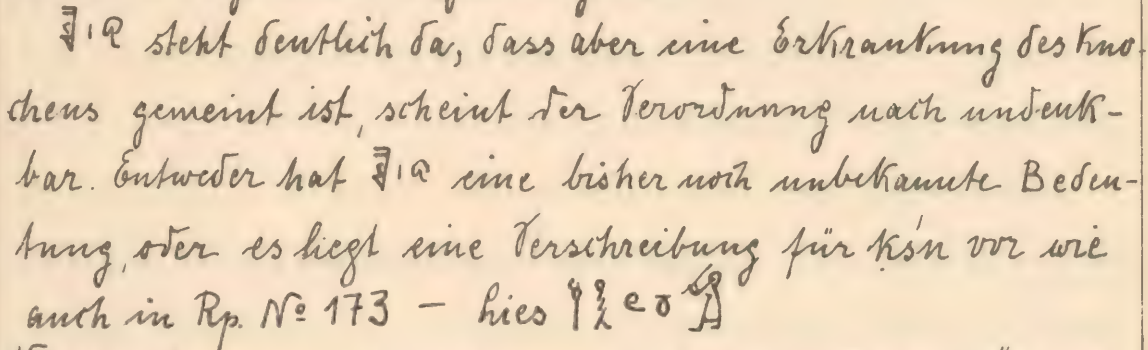 steht deutlich da, dass aber eine Erkrankung des Kno-
chens gemeint ist, scheint der Verordnung nach undenk-
bar. Entweder hat eine bisher noch unbekannte Bedeu-
tung, oder es liegt eine Verschreibung für ḳśn vor wie
auch in Rp. Nº 173 — lies